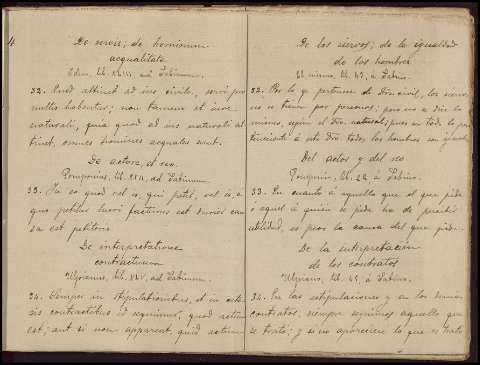 4
De servis; de hominum
aequalitate
Idem, lib. XLIII, ad Sabinum.
32. Quod attinet ad ius civile, servi pro
nullis habentur; non tamen et iure
naturali, quia quod ad ius naturali at
tinet, omnes homines aequales sunt.
De actore, et reo
Pomponius, lib. XXII, ad Sabinum.
33. In eo quod vel is, qui petit, vel is, a
quo petitur lucri facturus est durior cau
sa est petitoris.
De interpretatione
contractuum
Ulpianus, lib. XLV, ad Sabinum.
34. Semper in stipulationibus, et in cete
ris contractibus id sequimur, quod actum
est; aut si non appareat quid actum
De los siervos; de la igualdad
de los hombres
El mismo, lib. 43, á Sabino.
32. Por lo q pertenece al Dro. civil, los siervos
no se tienen por personas; pero no se dice lo
mismo, según el Dro. natural; pues en todo lo per
teneciente á este Dro. todos los hombres son iguales
Del actor y del reo
Pomponio, lib. 22 á Sabino
33. En cuanto á aquello que el que pide
ó aquel á quien se pide ha de percibir
utilidad, es peor la causa del que pide.
De la interpretación
de los contratos
Ulpiano, lib. 45, á Sabino.
34. En las estipulaciones y en los demás
contratos, siempre seguimos aquello que
se trató; y si no apareciere lo que se trató